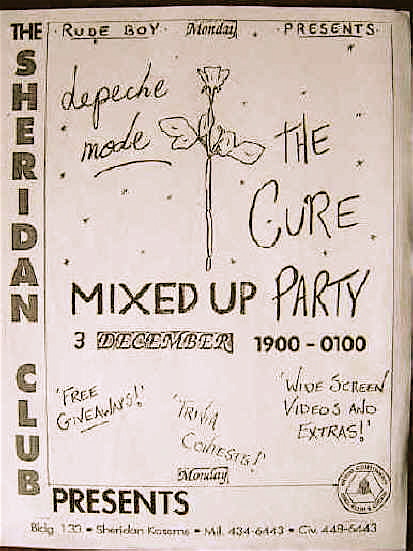 THE SHERIDAN CLUB
RUDE BOY Monday PRESENTS
depeche
mode
THE
CURE
MIXED UP PARTY
3 DECEMBER 1900 - 0100
'FREE
GIVEAWAYS!'
'TRIVIA
CONTESTS!'
'WIDE SCREEN
VIDEOS AND
EXTRAS!'
Monday
PRESENTS
Bldg 130 • Sheridan Kaserne • Mil. 434-6443 • Civ. 448-6443